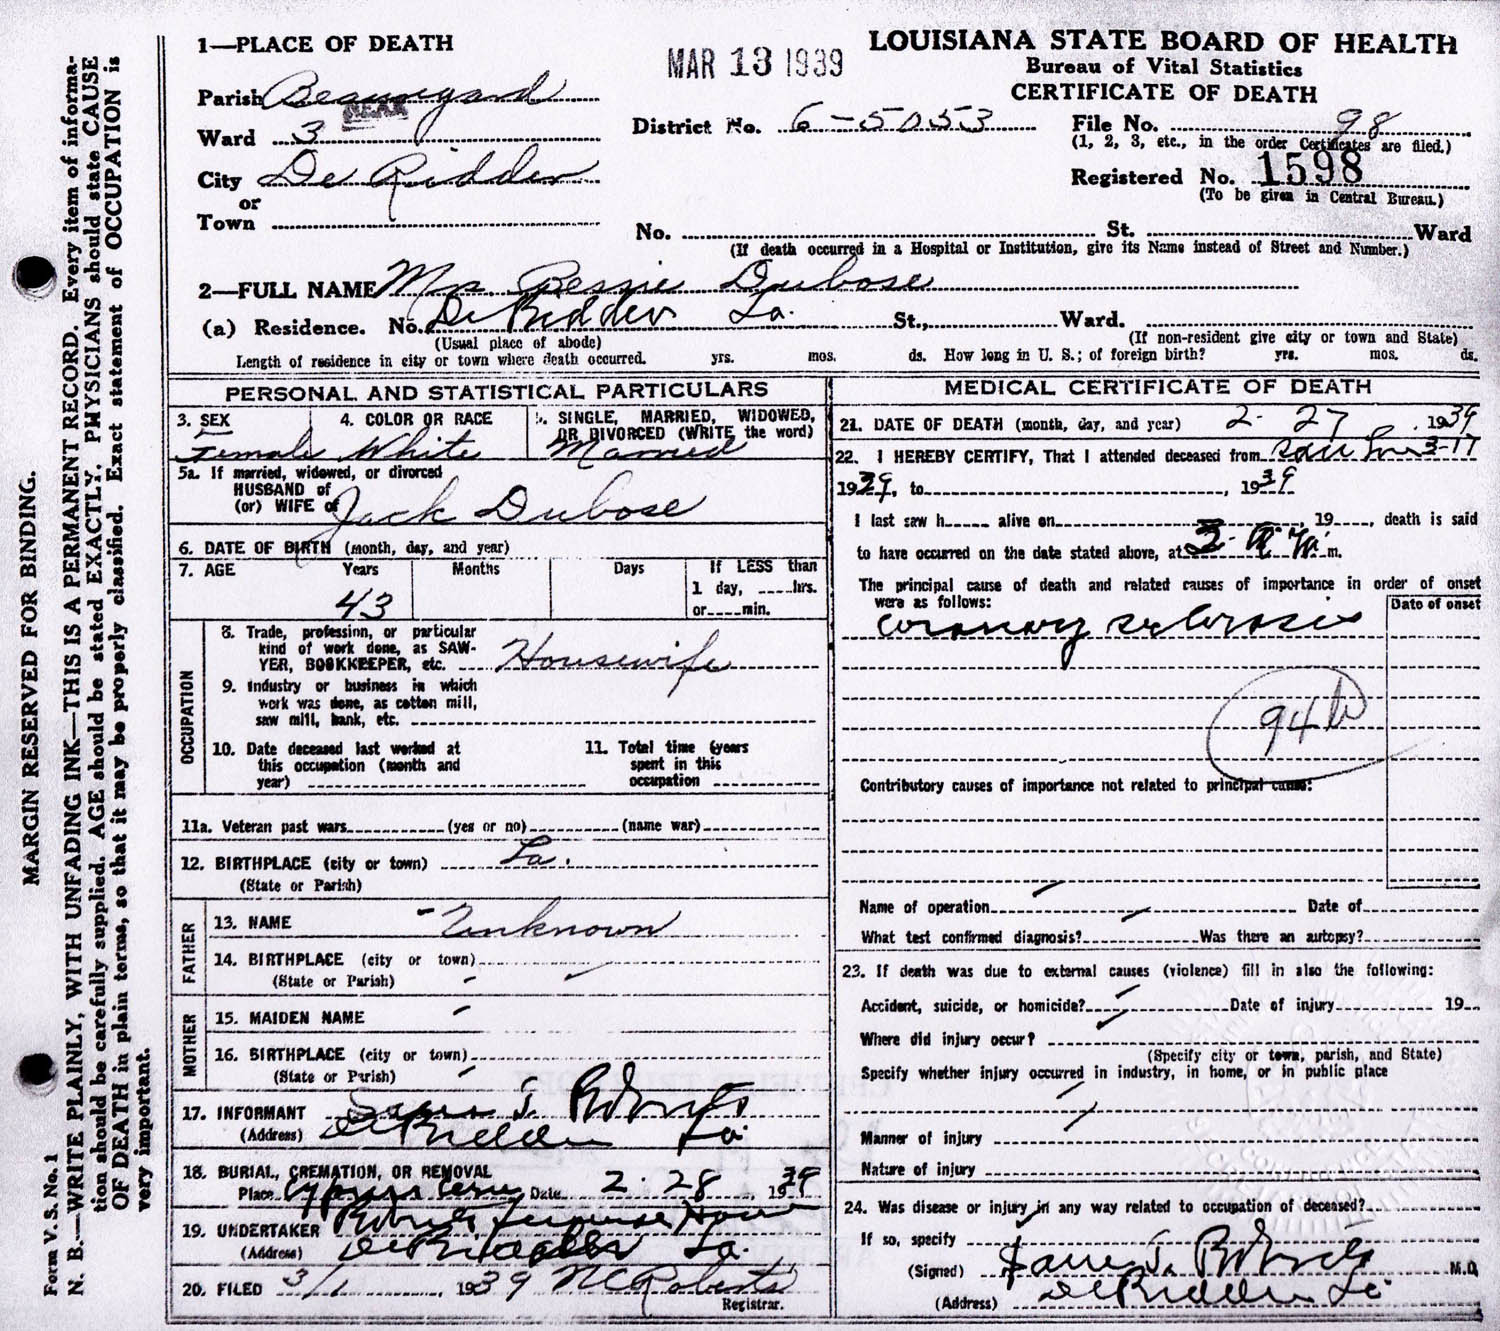 MARGIN RESERVED FOR BINDING.
Form V. S. No. 1
N. B.—WRITE PLAINLY, WITH UNFADING INK—THIS IS A PERMANENT RECORD. Every item of informa-
tion should be carefully supplied. AGE should be stated EXACTLY. PHYSICIANS should state CAUSE
OF DEATH in plain terms, so that it may be properly classified. Exact statement of OCCUPATION is
very important.
1—PLACE OF DEATH
MAR 13 1939
LOUISIANA STATE BOARD OF HEALTH
Bureau of Vital Statistics
CERTIFICATE OF DEATH
Parish Beauregard
NEAR
Ward 3
District No. 6-5053
File No. 98
(1, 2, 3, etc., in the order Certificates are filed.)
City De Ridder
or
Town
Registered No. 1598
(To be given in Central Bureau.)
No. St. Ward
(If death occurred in a Hospital or Institution, give its Name instead of Street and Number.)
2—FULL NAME Mrs. Bessie Dubose
(a) Residence. No. De Ridder La. St., Ward.
(Usual place of abode) (If non-resident give city or town and State)
Length of residence in city or town where death occurred. yrs. mos. ds. How long in U. S.; of foreign birth? yrs. mos. ds.
PERSONAL AND STATISTICAL PARTICULARS
3. SEX 4. COLOR OR RACE 5. SINGLE, MARRIED, WIDOWED,
OR DIVORCED (WRITE the word)
Female White Married
5a. If married, widowed, or divorced
HUSBAND of
(or) WIFE of Jack Dubose
6. DATE OF BIRTH (month, day, and year)
7. AGE Years Months Days If LESS than
1 day, hrs.
or min.
43
OCCUPATION
8. Trade, profession, or particular
kind of work done, as SAW-
YER, BOOKKEEPER, etc. Housewife
9. Industry or business in which
work was done, as cotton mill,
saw mill, bank, etc.
10. Date deceased last worked at
this occupation (month and
year)
11. Total time (years
spent in this
occupation
11a. Veteran past wars (yes or no) (name war)
12. BIRTHPLACE (city or town) La.
(State or Parish)
FATHER
13. NAME - Unknown
14. BIRTHPLACE (city or town)
(State or Parish) - -
MOTHER
15. MAIDEN NAME -
16. BIRTHPLACE (city or town)
(State or Parish) -
17. INFORMANT T. Roberts
(Address) De Ridder La.
18. BURIAL, CREMATION, OR REMOVAL
Place Cypress Cem Date 2-28 1939
19. UNDERTAKER Roberts Home
(Address) De Ridder La.
20. FILED 3/1 1939 Roberts
Registrar.
MEDICAL CERTIFICATE OF DEATH
21. DATE OF DEATH (month, day, and year) 2-27 1939
22. I HEREBY CERTIFY, That I attended deceased from 3-17
1939, to , 1939
I last saw h alive on , 19 , death is said
to have occurred on the date stated above, at 3 A. m.
The principal cause of death and related causes of importance in order of onset
were as follows: Date of onset
Coronary sclerosis
94b
Contributory causes of importance not related to principal cause:
Name of operation Date of
What test confirmed diagnosis? Was there an autopsy?
23. If death was due to external causes (violence) fill in also the following:
Accident, suicide, or homicide? Date of injury 19
Where did injury occur?
(Specify city or town, parish, and State)
Specify whether injury occurred in industry, in home, or in public place
Manner of injury
Nature of injury
24. Was disease or injury in any way related to occupation of deceased?
If so, specify
(Signed) T. Roberts M.D.
(Address) De Ridder La